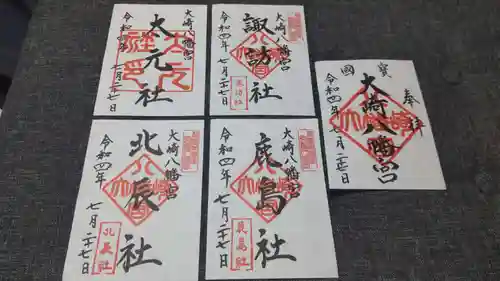 大崎八幡宮
大元社
令和四年
七月二十七日
大崎八幡宮
諏訪社
令和四年
七月二十七日
諏訪社
國寳
奉拝
大崎八幡宮
令和四年
七月二十七日
大崎八幡宮
北辰社
令和四年
七月二十七日
北辰社
大崎八幡宮
鹿島社
令和四年
七月二十七日
鹿島社